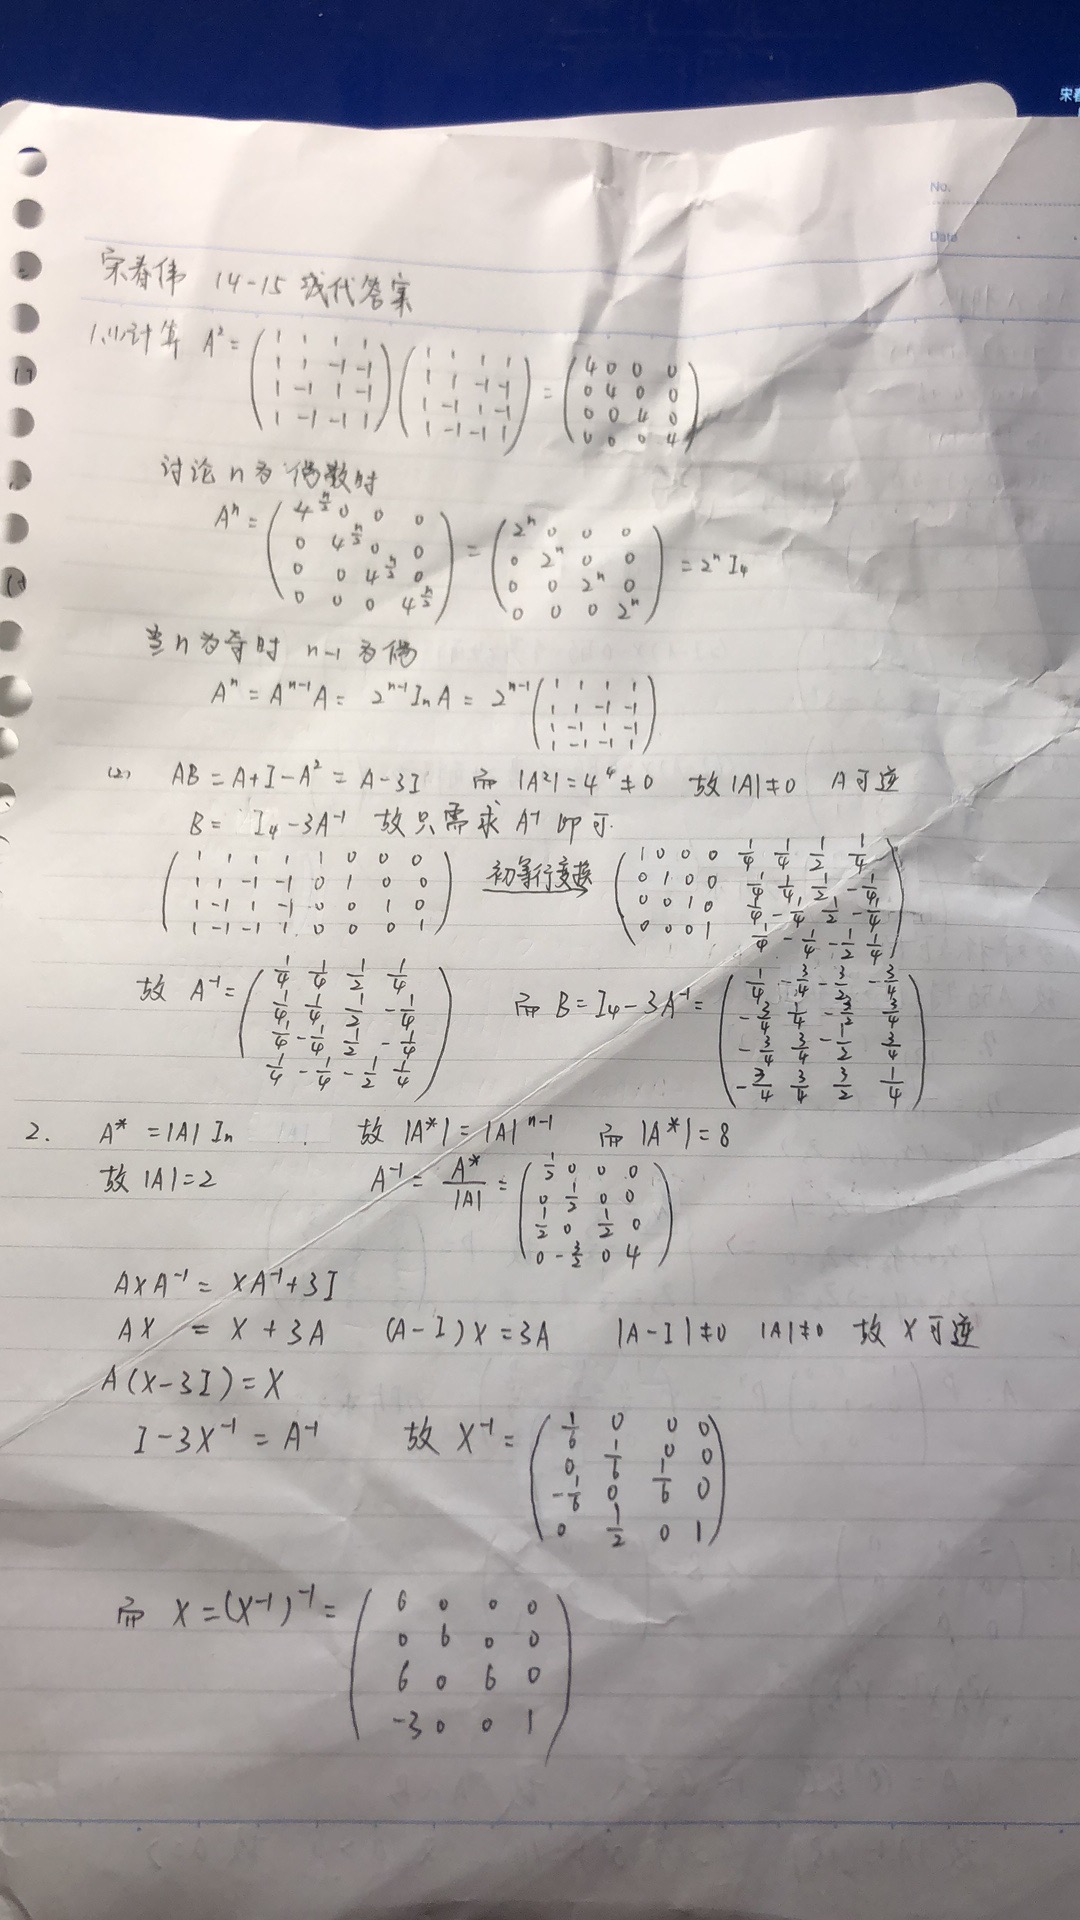 宋春
No.
Date
宋春伟 14-15 线代答案
1.(1)计算 A² = (1 1 1 1; 1 1 -1 -1; 1 -1 1 -1; 1 -1 -1 1) (1 1 1 1; 1 1 -1 -1; 1 -1 1 -1; 1 -1 -1 1) = (4 0 0 0; 0 4 0 0; 0 0 4 0; 0 0 0 4)
讨论 n为偶数时
Aⁿ = (4^(n/2) 0 0 0; 0 4^(n/2) 0 0; 0 0 4^(n/2) 0; 0 0 0 4^(n/2)) = (2ⁿ 0 0 0; 0 2ⁿ 0 0; 0 0 2ⁿ 0; 0 0 0 2ⁿ) = 2ⁿ I₄
当n为奇时 n-1为偶
Aⁿ = Aⁿ⁻¹A = 2ⁿ⁻¹IₙA = 2ⁿ⁻¹ (1 1 1 1; 1 1 -1 -1; 1 -1 1 -1; 1 -1 -1 1)
(2) AB = A+I-A² = A-3I 而 |A²| = 4⁴ ≠ 0 故|A|≠0 A可逆
B = I₄-3A⁻¹ 故只需求 A⁻¹ 即可.
(1 1 1 1 1 0 0 0; 1 1 -1 -1 0 1 0 0; 1 -1 1 -1 0 0 1 0; 1 -1 -1 1 0 0 0 1) 初等行变换 (1 0 0 0 1/4 1/4 1/2 1/4; 0 1 0 0 1/4 1/4 1/2 -1/4; 0 0 1 0 1/4 -1/4 1/2 -1/4; 0 0 0 1 1/4 -1/4 -1/2 1/4)
故 A⁻¹ = (1/4 1/4 1/2 1/4; 1/4 1/4 1/2 -1/4; 1/4 -1/4 1/2 -1/4; 1/4 -1/4 -1/2 1/4) 而 B = I₄-3A⁻¹ = (1/4 -3/4 -3/2 -3/4; -3/4 1/4 -3/2 3/4; -3/4 3/4 -1/2 3/4; -3/4 3/4 3/2 1/4)
2. A* = |A| Iₙ 故 |A*| = |A|ⁿ⁻¹ 而 |A*| = 8
故 |A| = 2 A⁻¹ = A*/|A| = (1/2 0 0 0; 0 1/2 0 0; 1/2 0 1/2 0; 0 -3/2 0 4)
AXA⁻¹ = XA⁻¹+3I
AX = X+3A (A-I)X = 3A |A-I|≠0 |A|≠0 故 X可逆
A(X-3I) = X
I-3X⁻¹ = A⁻¹ 故 X⁻¹ = (1/6 0 0 0; 0 1/6 0 0; -1/6 0 1/6 0; 0 1/2 0 1)
而 X = (X⁻¹)⁻¹ = (6 0 0 0; 0 6 0 0; 6 0 6 0; -3 0 0 1)